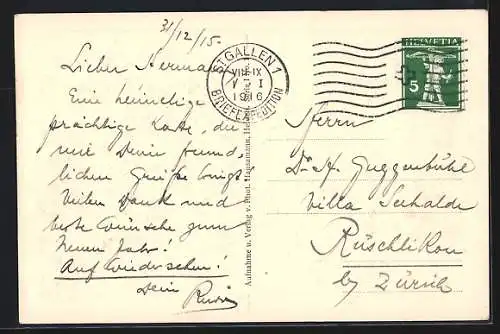 31/12/15.
Lieber Hermann
Eine heimelige
prächtige Karte, die
mir Deine freund-
lichen Grüsse bringt.
Vielen Dank und
beste Wünsche zum
Neuen Jahr!
Auf Wiedersehen!
Dein
Aufnahme u. Verlag v. Phot. Hausamann, He
ST. GALLEN 1
VIII-IX
V I
1916
BRIEFEXPEDITION
HELVETIA
5
Herrn
Dr. H. Guggenbühl
Villa Seehalde
Rüschlikon
by Zürich